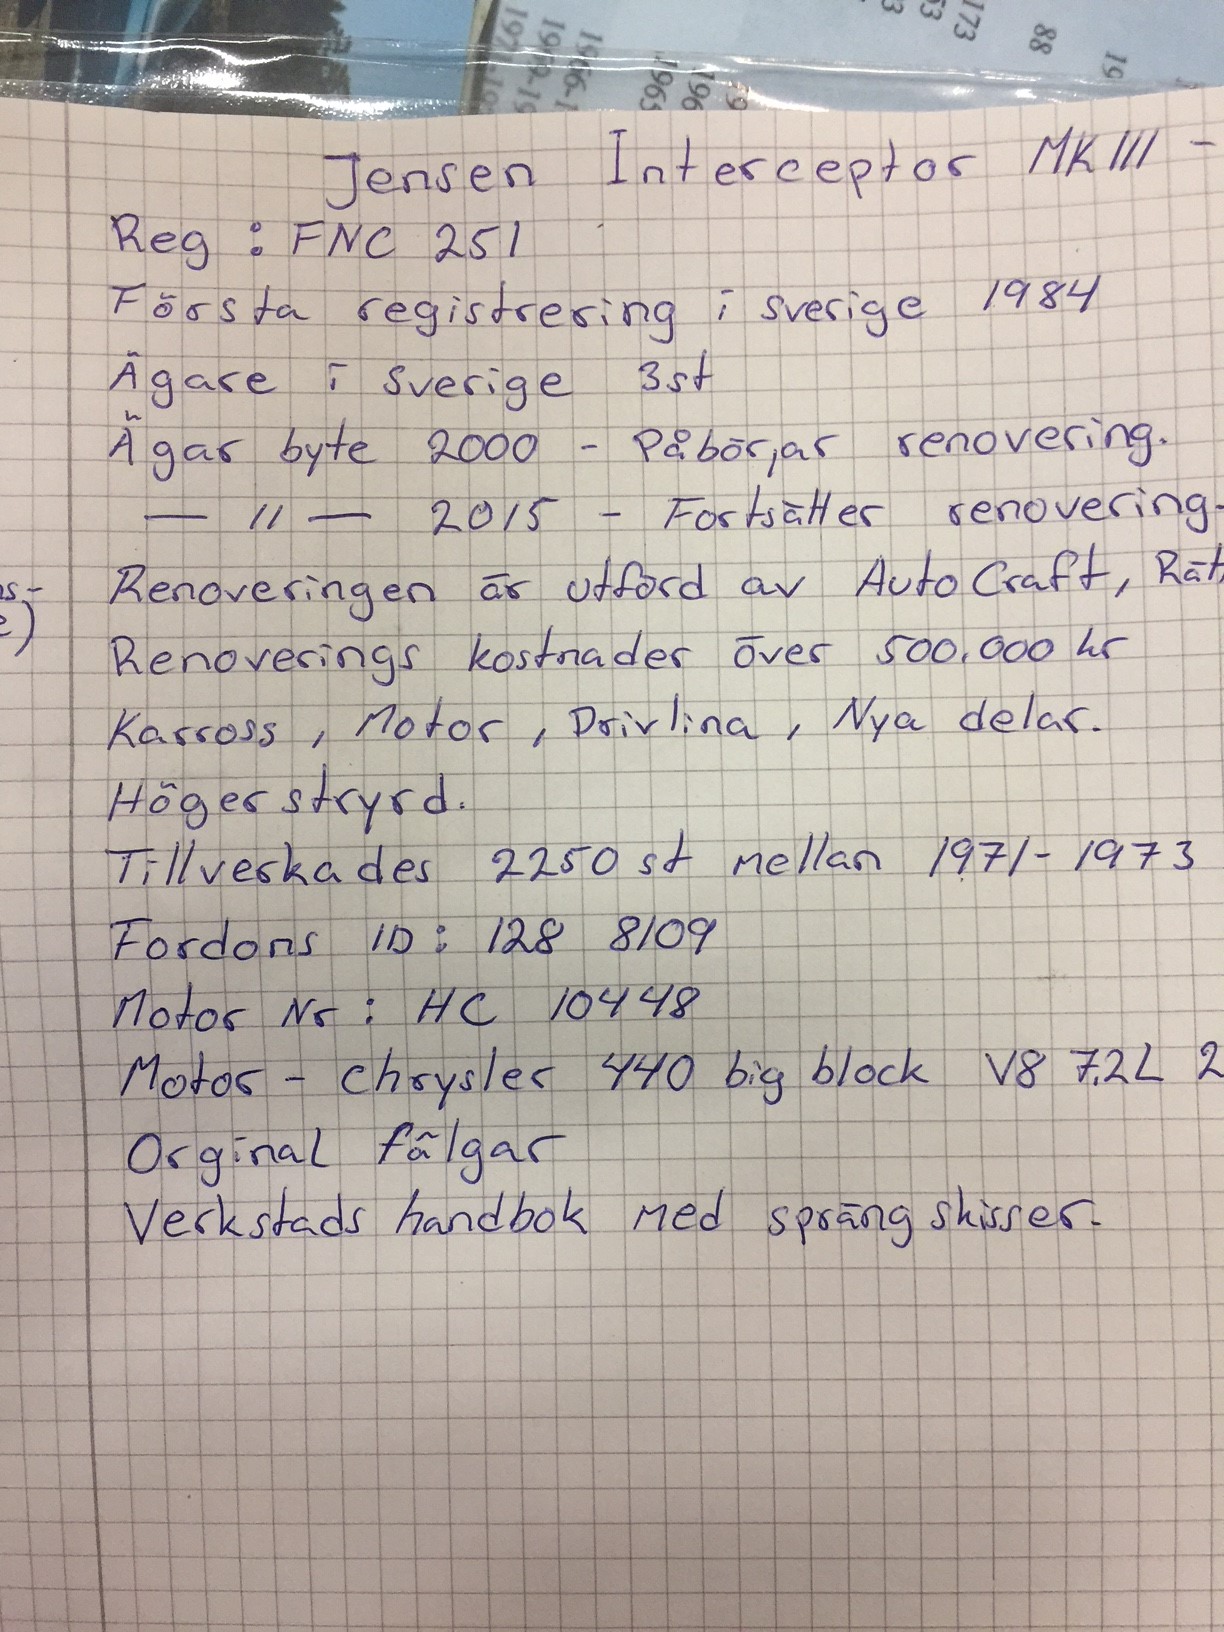 173
53
88
19
1965
196
Jensen Interceptor MK III -
Reg : FNC 251
Första registrering i sverige 1984
Ägare i sverige 3st
Ägar byte 2000 - Påbörjar renovering.
— 11 — 2015 - Fortsätter renovering.
Renoveringen är utförd av AutoCraft, Rät
Renoverings kostnader över 500.000 kr
Karross, Motor, Drivlina, Nya delar.
Höger stryrd.
Tillverkades 2250 st mellan 1971-1973
Fordons ID: 128 8109
Motor Nr: HC 10448
Motor - chrysler 440 big block V8 7,2L 2
Orginal fälgar
Verkstads handbok med spräng skisser.